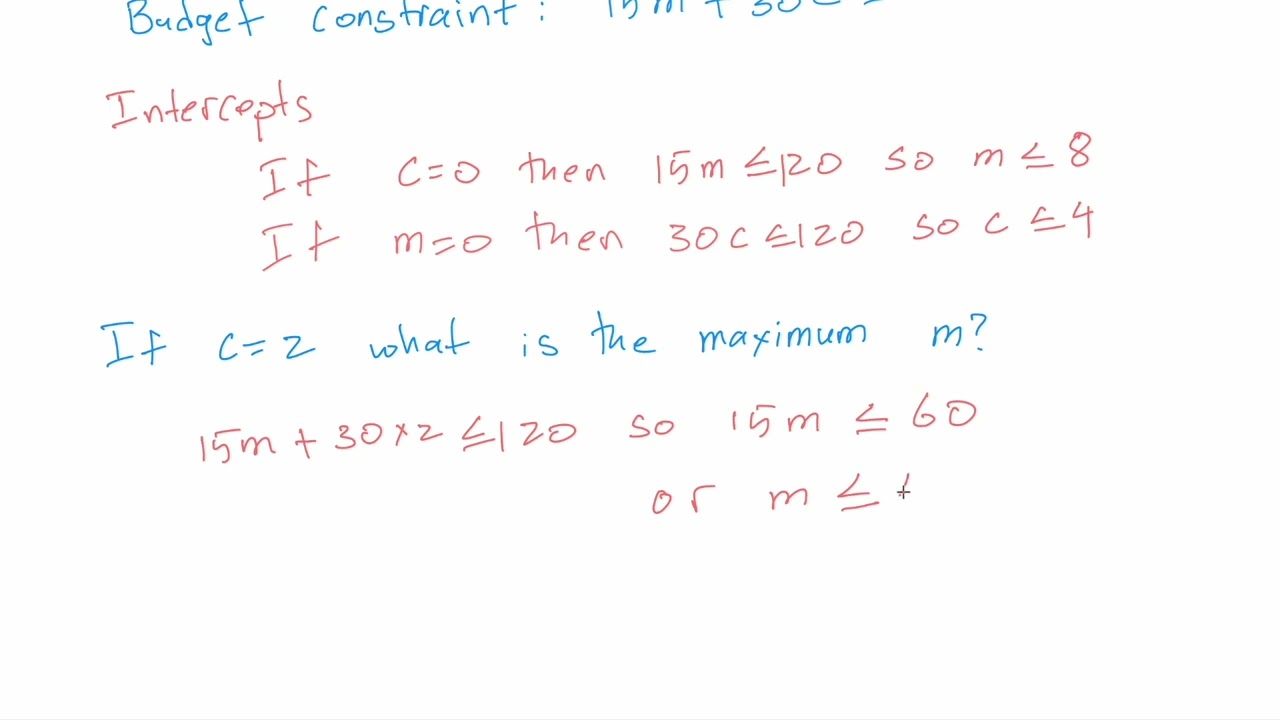 Budget constraint: 15m + 30c ≤
Intercepts
If c=0 then 15m ≤120 so m ≤ 8
If m=0 then 30c ≤120 so c ≤ 4
If c=2 what is the maximum m?
15m + 30×2 ≤120 so 15m ≤ 60
or m ≤